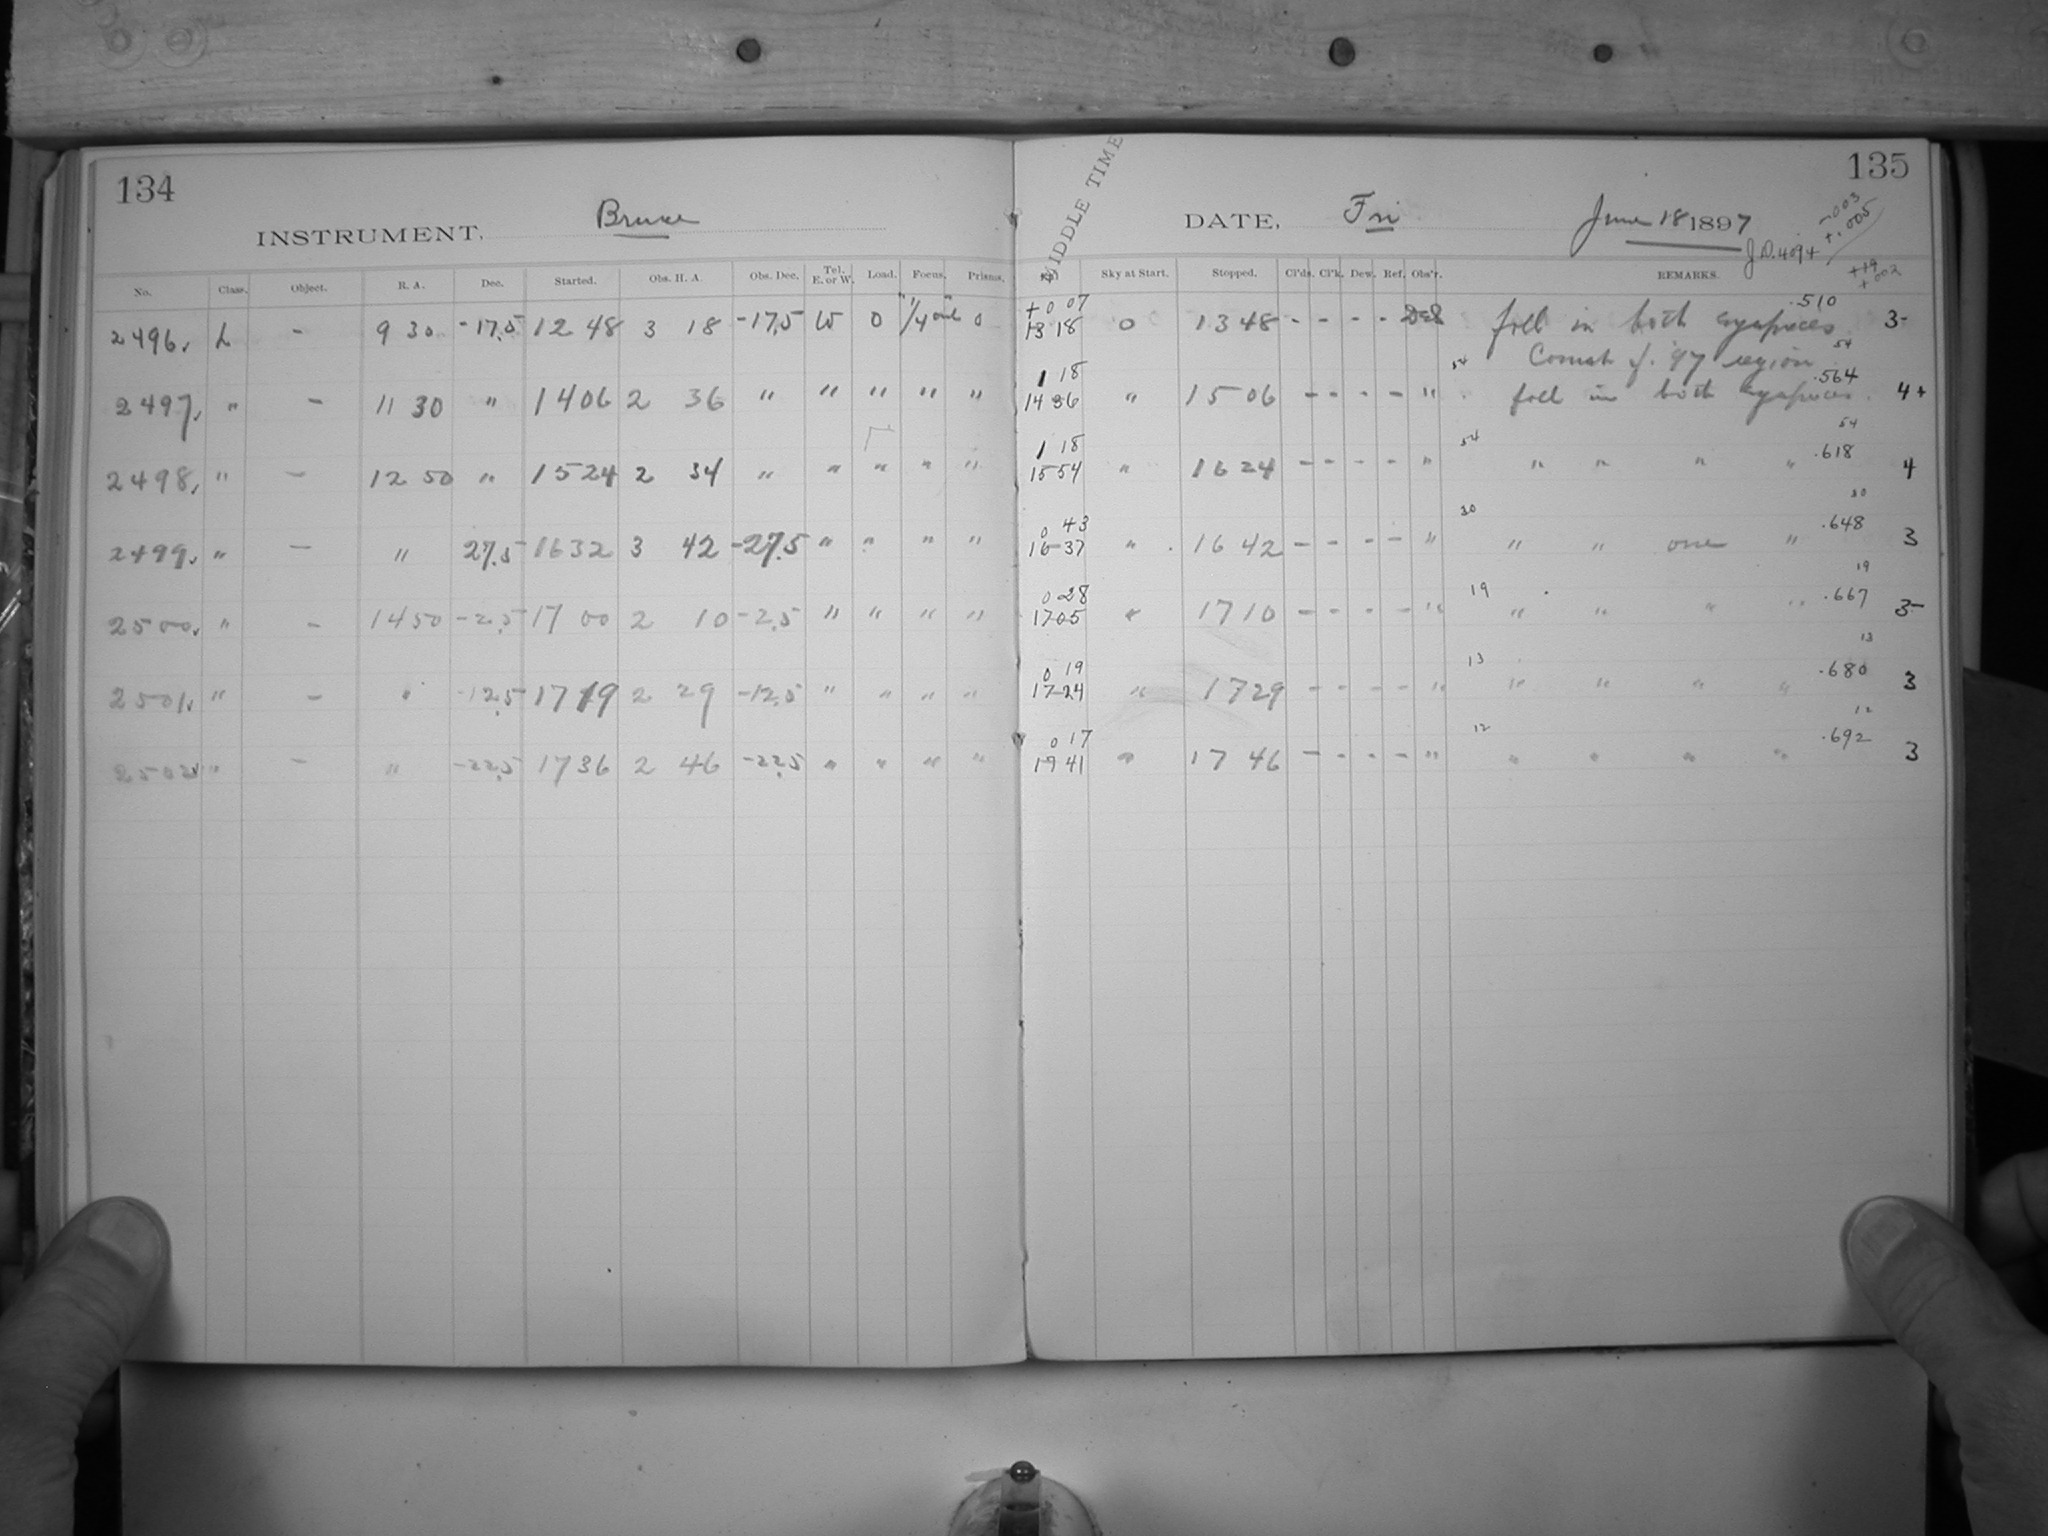 134
INSTRUMENT, Bruce
No. Class. Object. R. A. Dec. Started. Obs. H. A. Obs. Dec. Tel. E. or W. Load. Focus. Prisms.
2496. L - 9 30 -17.5 12 48 3 18 -17.5 W 0 1/4 out 0
2497. " - 11 30 " 14 06 2 36 " " " " "
2498. " - 12 50 " 15 24 2 34 " " " " "
2499. " - " 27.5 16 32 3 42 -27.5 " " " "
2500. " - 14 50 -2.5 17 00 2 10 -2.5 " " " "
2501. " - " -12.5 17 19 2 29 -12.5 " " " "
2502 " - " -22.5 17 36 2 46 -22.5 " " " "
135
MIDDLE TIME
DATE, Fri June 18 1897
-.003
+.005
J.D. 4094
+19
+.002
Sky at Start. Stopped. Cl'ds. Cl'k. Dew. Ref. Obs'r. REMARKS.
+0 07 .510
13 18 0 13 48 - - - - foll in both eyepieces 3-
Comet f. '97 region 54
1 18 54 .564
14 36 " 15 06 - - - - " foll in both eyepieces. 4+
1 18 54 54
15 54 " 16 24 - - - - " " " " " .618 4
0 43 30 30
16 37 " 16 42 - - - - " " " one " .648 3
0 28 19 19
17 05 " 17 10 - - - - " " " " " .667 3-
0 19 13 13
17 24 " 17 29 - - - - " " " " " .680 3
0 17 12 12
19 41 " 17 46 - - - - " " " " " .692 3